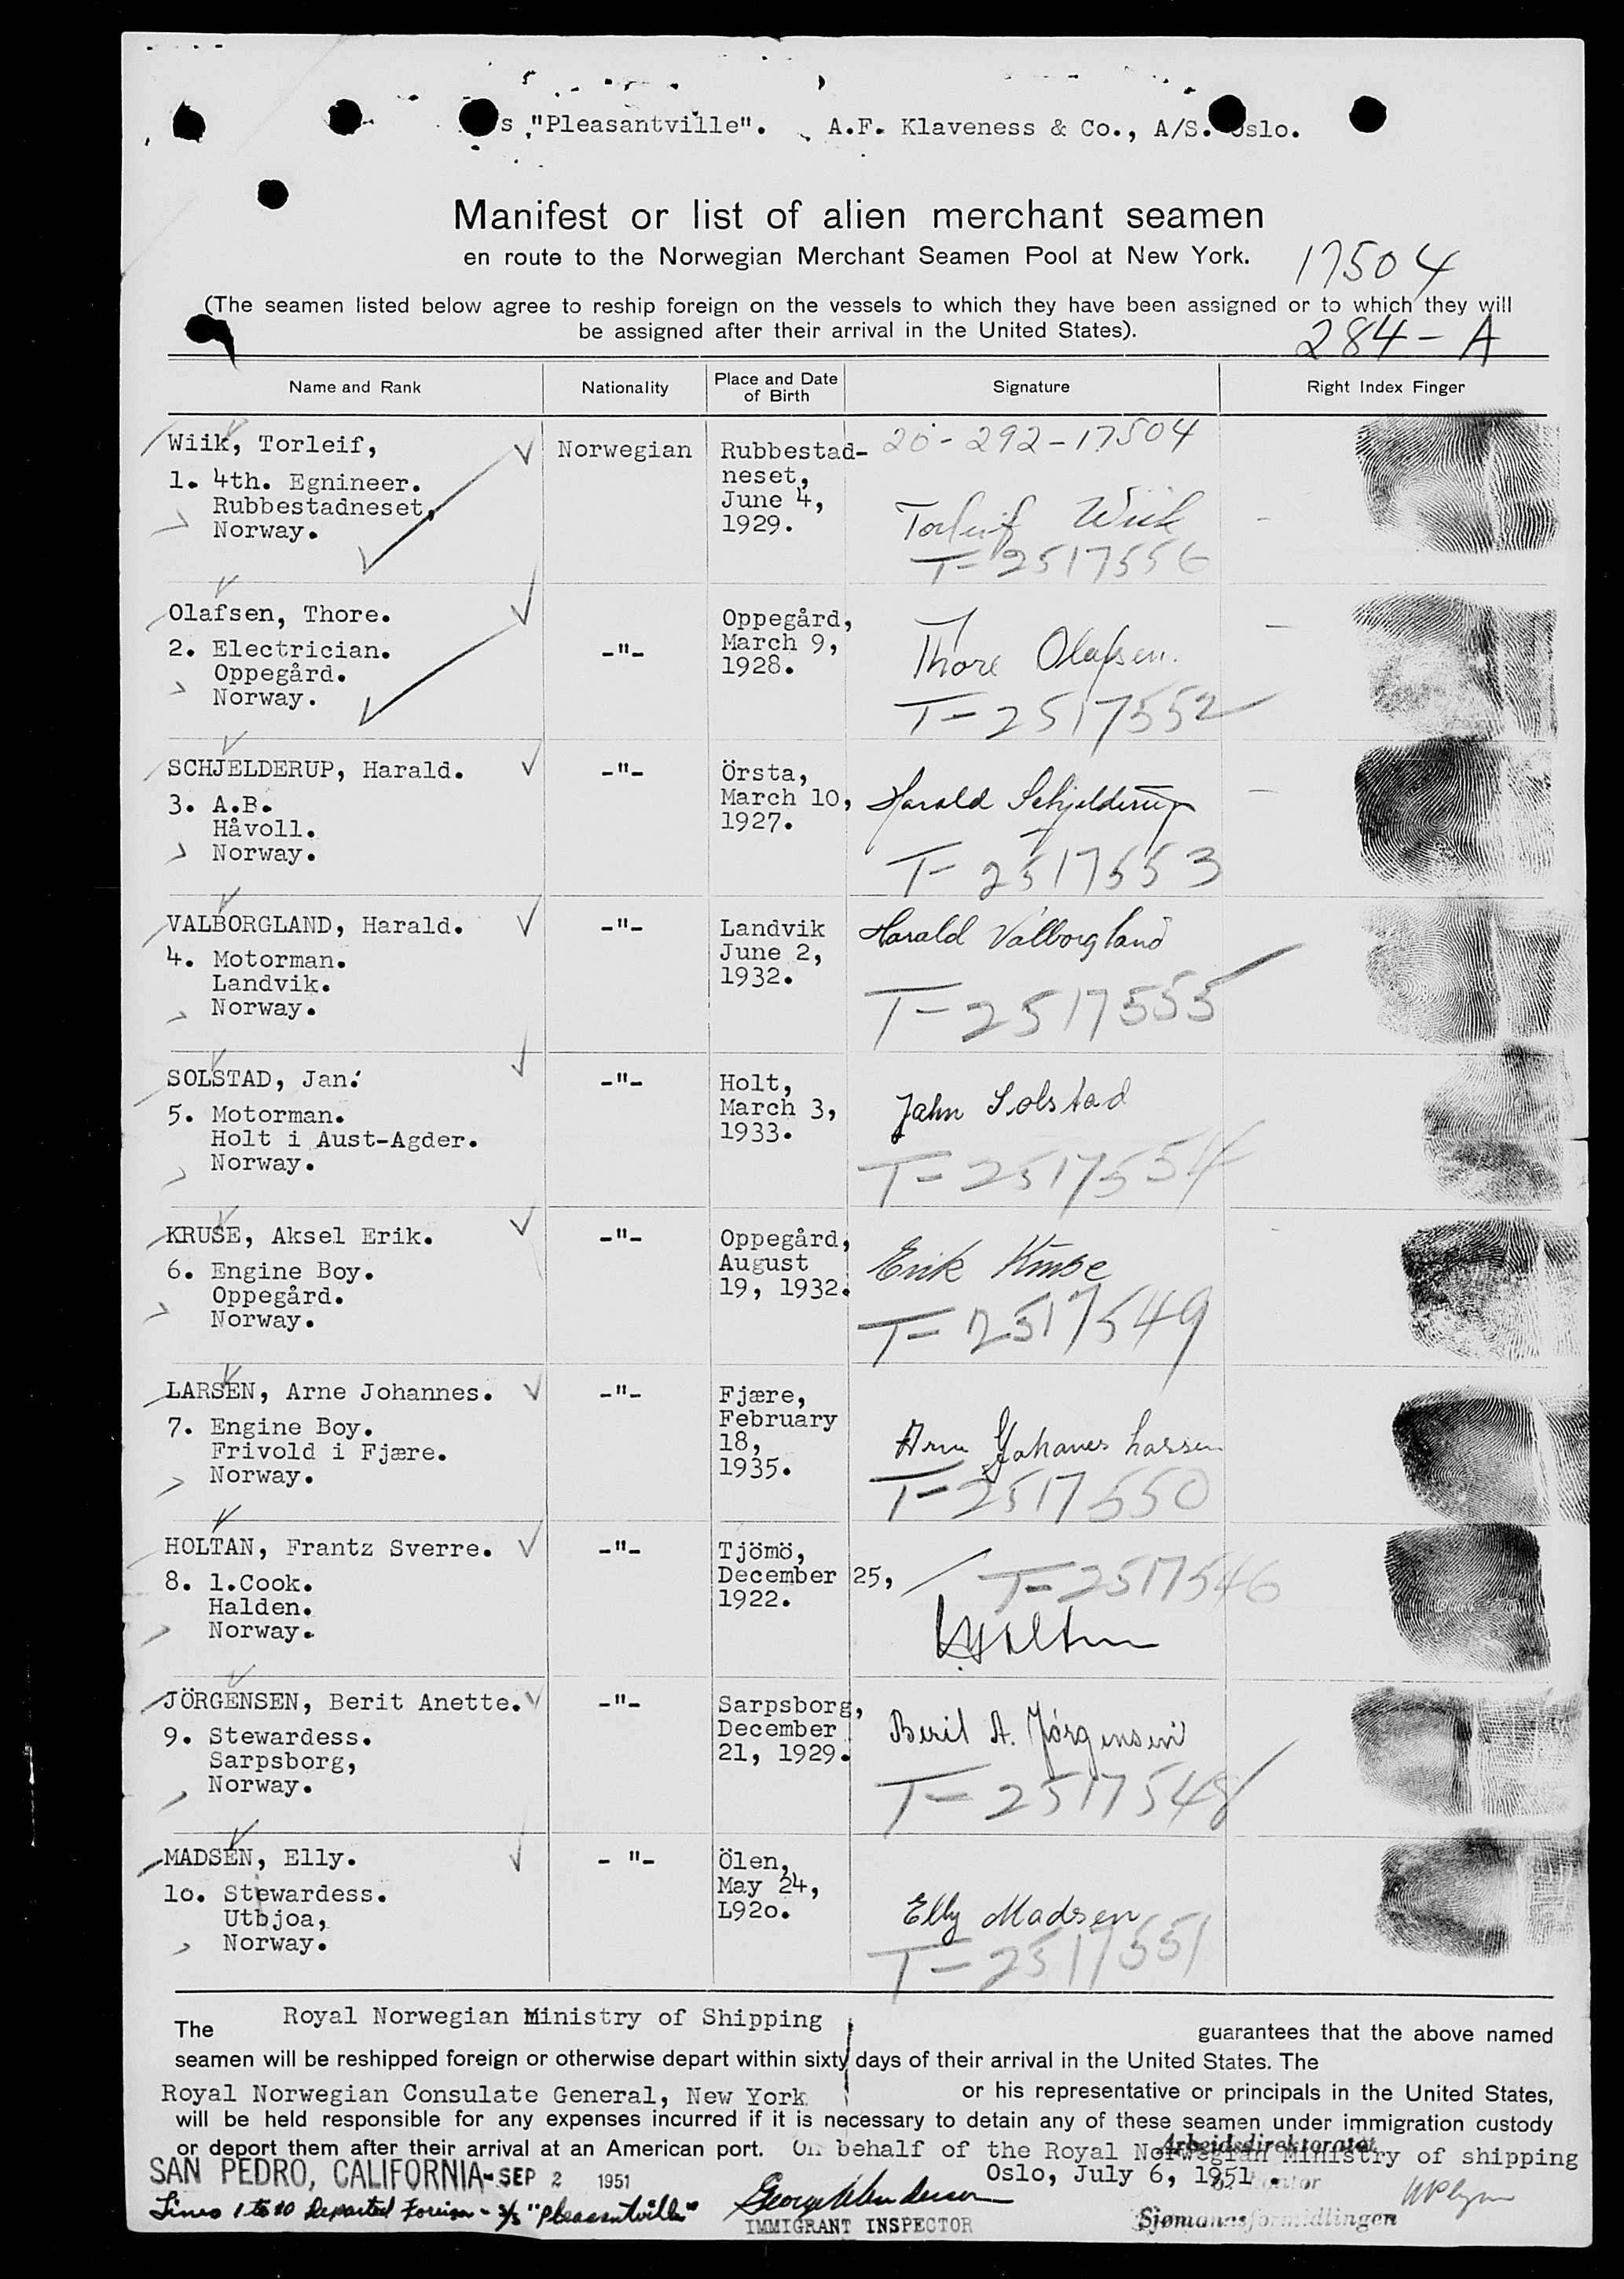 s "Pleasantville". A.F. Klaveness & Co., A/S. Oslo.
Manifest or list of alien merchant seamen
en route to the Norwegian Merchant Seamen Pool at New York.
17504
(The seamen listed below agree to reship foreign on the vessels to which they have been assigned or to which they will
be assigned after their arrival in the United States).
284-A
Name and Rank Nationality Place and Date of Birth Signature Right Index Finger
Wiik, Torleif, Norwegian Rubbestad- 20-292-17504
1. 4th. Egnineer. neset,
Rubbestadneset, June 4, Torleif Wiik
Norway. 1929.
T-2517556
Olafsen, Thore. Oppegård,
2. Electrician. -"- March 9, Thore Olafsen.
Oppegård. 1928.
Norway. T-2517552
SCHJELDERUP, Harald. -"- Örsta,
3. A.B. March 10, Harald Schjelderup
Håvoll. 1927.
Norway. T-2517553
VALBORGLAND, Harald. -"- Landvik Harald Valborgland
4. Motorman. June 2,
Landvik. 1932.
Norway. T-2517555
SOLSTAD, Jan. -"- Holt,
5. Motorman. March 3, Jahn Solstad
Holt i Aust-Agder. 1933.
Norway. T-2517554
KRUSE, Aksel Erik. -"- Oppegård,
6. Engine Boy. August Erik Kruse
Oppegård. 19, 1932.
Norway. T-2517549
LARSEN, Arne Johannes. -"- Fjære,
7. Engine Boy. February
Frivold i Fjære. 18, Arne Johanes Larsen
Norway. 1935.
T-2517550
HOLTAN, Frantz Sverre. -"- Tjömö,
8. 1.Cook. December 25, T-2517546
Halden. 1922.
Norway. Holtan
JÖRGENSEN, Berit Anette. -"- Sarpsborg,
9. Stewardess. December Berit A. Jörgensen
Sarpsborg, 21, 1929.
Norway. T-2517548
MADSEN, Elly. - "- Ölen,
1o. Stewardess. May 24,
Utbjoa, L92o. Elly Madsen
Norway. T-2517551
The Royal Norwegian Ministry of Shipping guarantees that the above named
seamen will be reshipped foreign or otherwise depart within sixty days of their arrival in the United States. The
Royal Norwegian Consulate General, New York or his representative or principals in the United States,
will be held responsible for any expenses incurred if it is necessary to detain any of these seamen under immigration custody
or deport them after their arrival at an American port. On behalf of the Royal Norwegian Ministry of shipping
Arbeidsdirektoratet
SAN PEDRO, CALIFORNIA- SEP 2 1951 Oslo, July 6, 1951.
Lines 1 to 10 Departed Foreign - s/s "Pleasantville"
IMMIGRANT INSPECTOR Sjømannsformidlingen